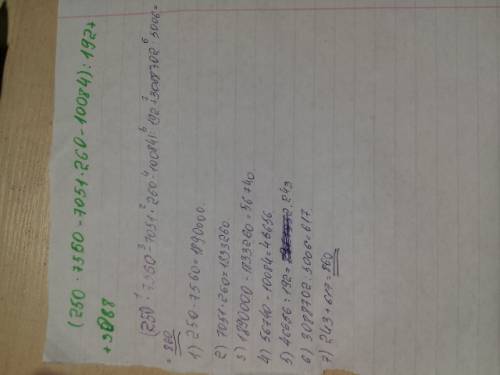 (250 · 7560 - 7051 · 260 - 10084) : 192 +
(250 ·¹ 7560 -³ 7051 ·² 260 -⁴ 10084) :⁵ 192 +⁷ 3088702 :⁶ 5006 =
= 860
1) 250 · 7560 = 1890000.
2) 7051 · 260 = 1833260.
3) 1890000 - 1833260 = 56740.
4) 56740 - 10084 = 46656
5) 46656 : 192 = 243
6) 3088702 : 5006 = 617.
7) 243 + 617 = 860